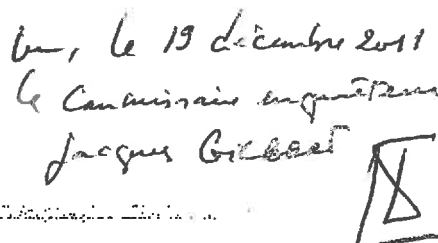 Vu, le 19 décembre 2011
le Commissaire enquêteur
Jacques Gilbert